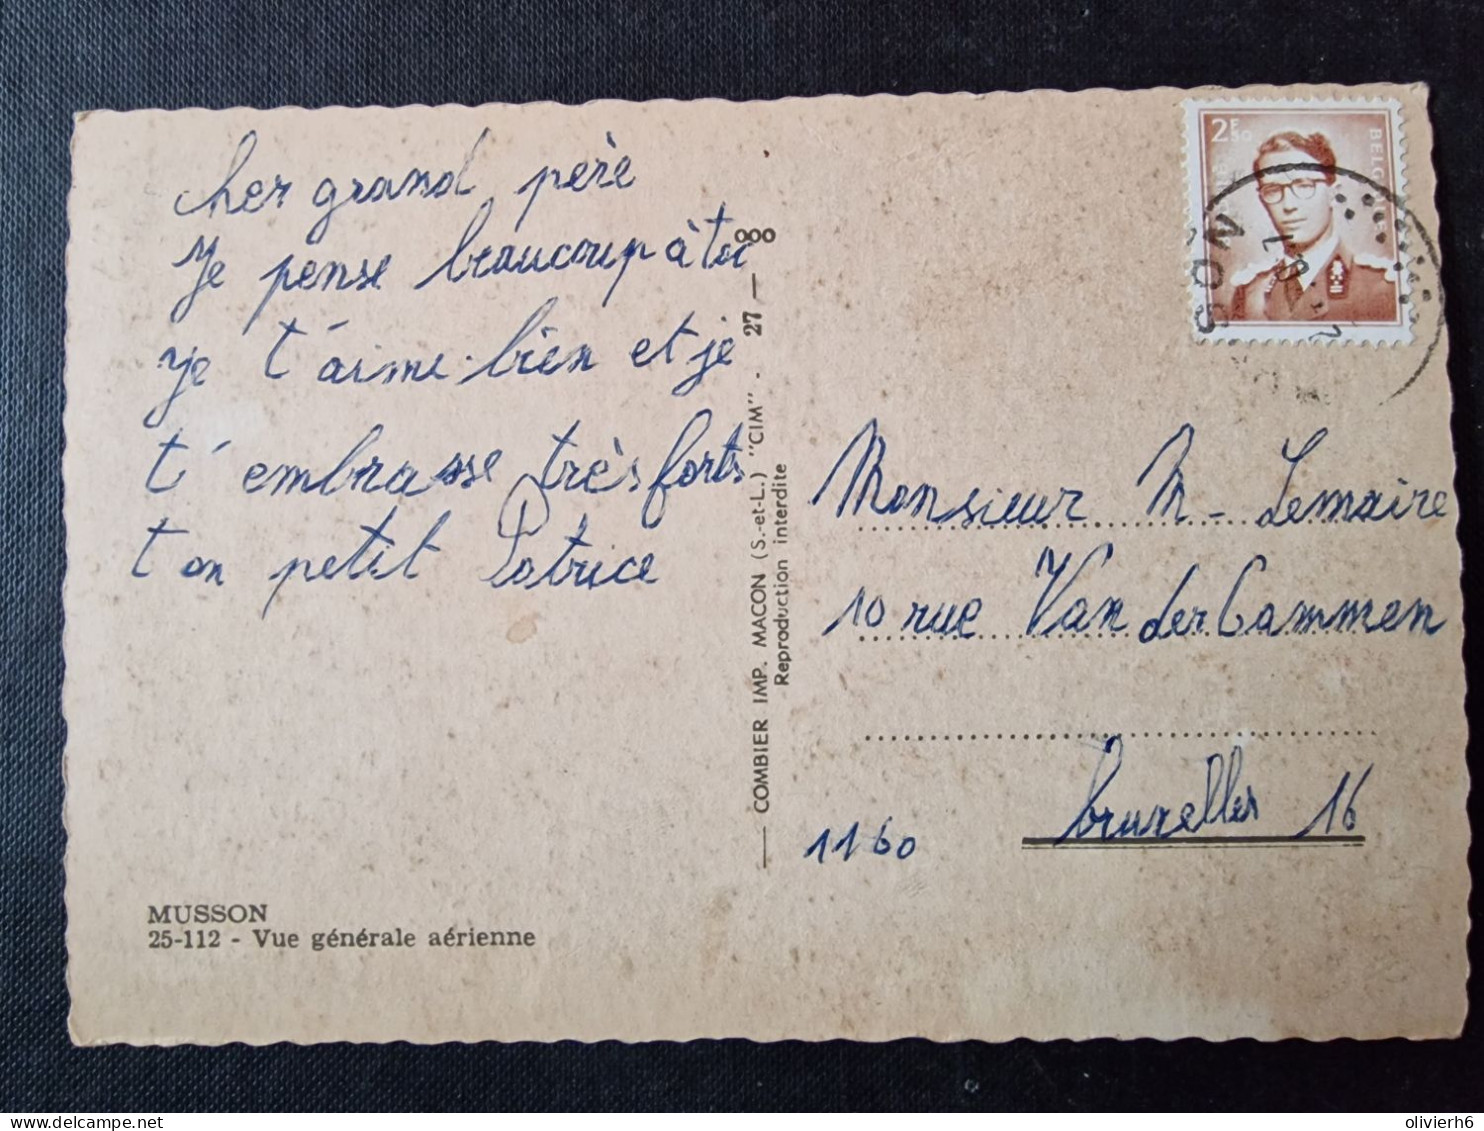 cher grand père
je pense beaucoup à toi
je t'aime bien et je
t'embrasse très forts
ton petit Patrice
MUSSON
25-112 - Vue générale aérienne
COMBIER IMP. MACON (S.-et-L.) "CIM". - 27 - 000
Reproduction interdite
2F50
BELGIQUE
Monsieur M - Lemaire
10 rue Van der Cammen
bruxelles 16
1160
olivierh6